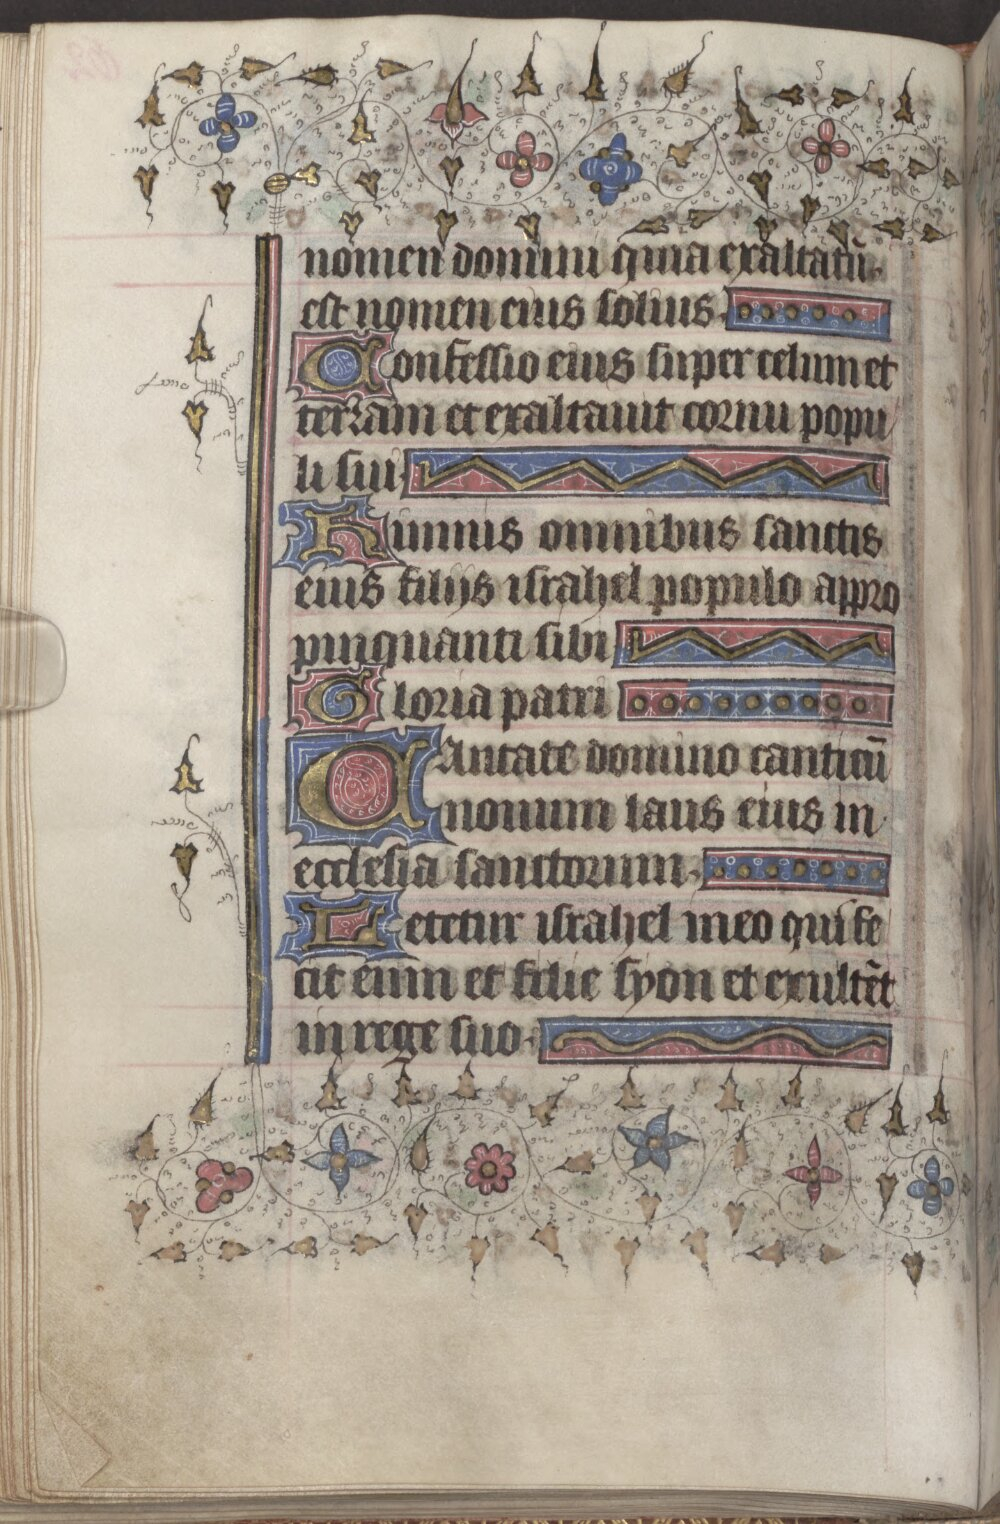 nomen domini quia exaltatū
est nomen eius solius.
Confessio eius super celum et
terram et exaltauit cornu popu
li sui
Himnis omnibus sanctis
eius filijs israhel populo appro
pinquanti sibi
Gloria patri
CAntate domino canticū
nouum laus eius in
ecclesia sanctorum.
Letetur israhel in eo qui fe
cit eum et filie syon et exultēt
in rege suo.